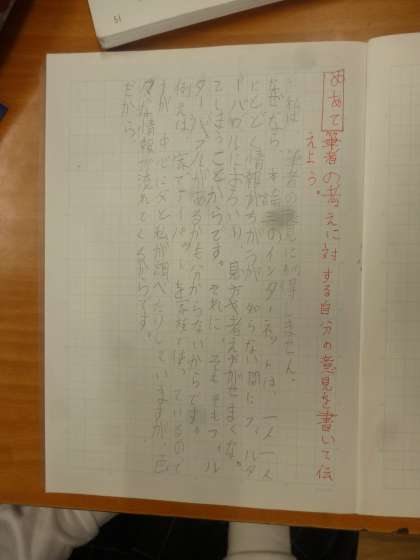 めあて筆者の考えに対する自分の意見を書いて伝
えよう。
私は、筆者の意見に納得しません。
なぜなら、本当のインターネットは、一人一人
にとどく情報がちがうが、知らない間にフィルタ
ーバブルにおちいり、見方や考えがせまくな
てしまうことからです。それに、そもそもフィル
ターバブルがあるかも分からないからです。
例えば、家でタブレットを家族で使っているので
すが、中心に父と私が調べたりしていますが、
な情報が流れてくるからです。
だから
15